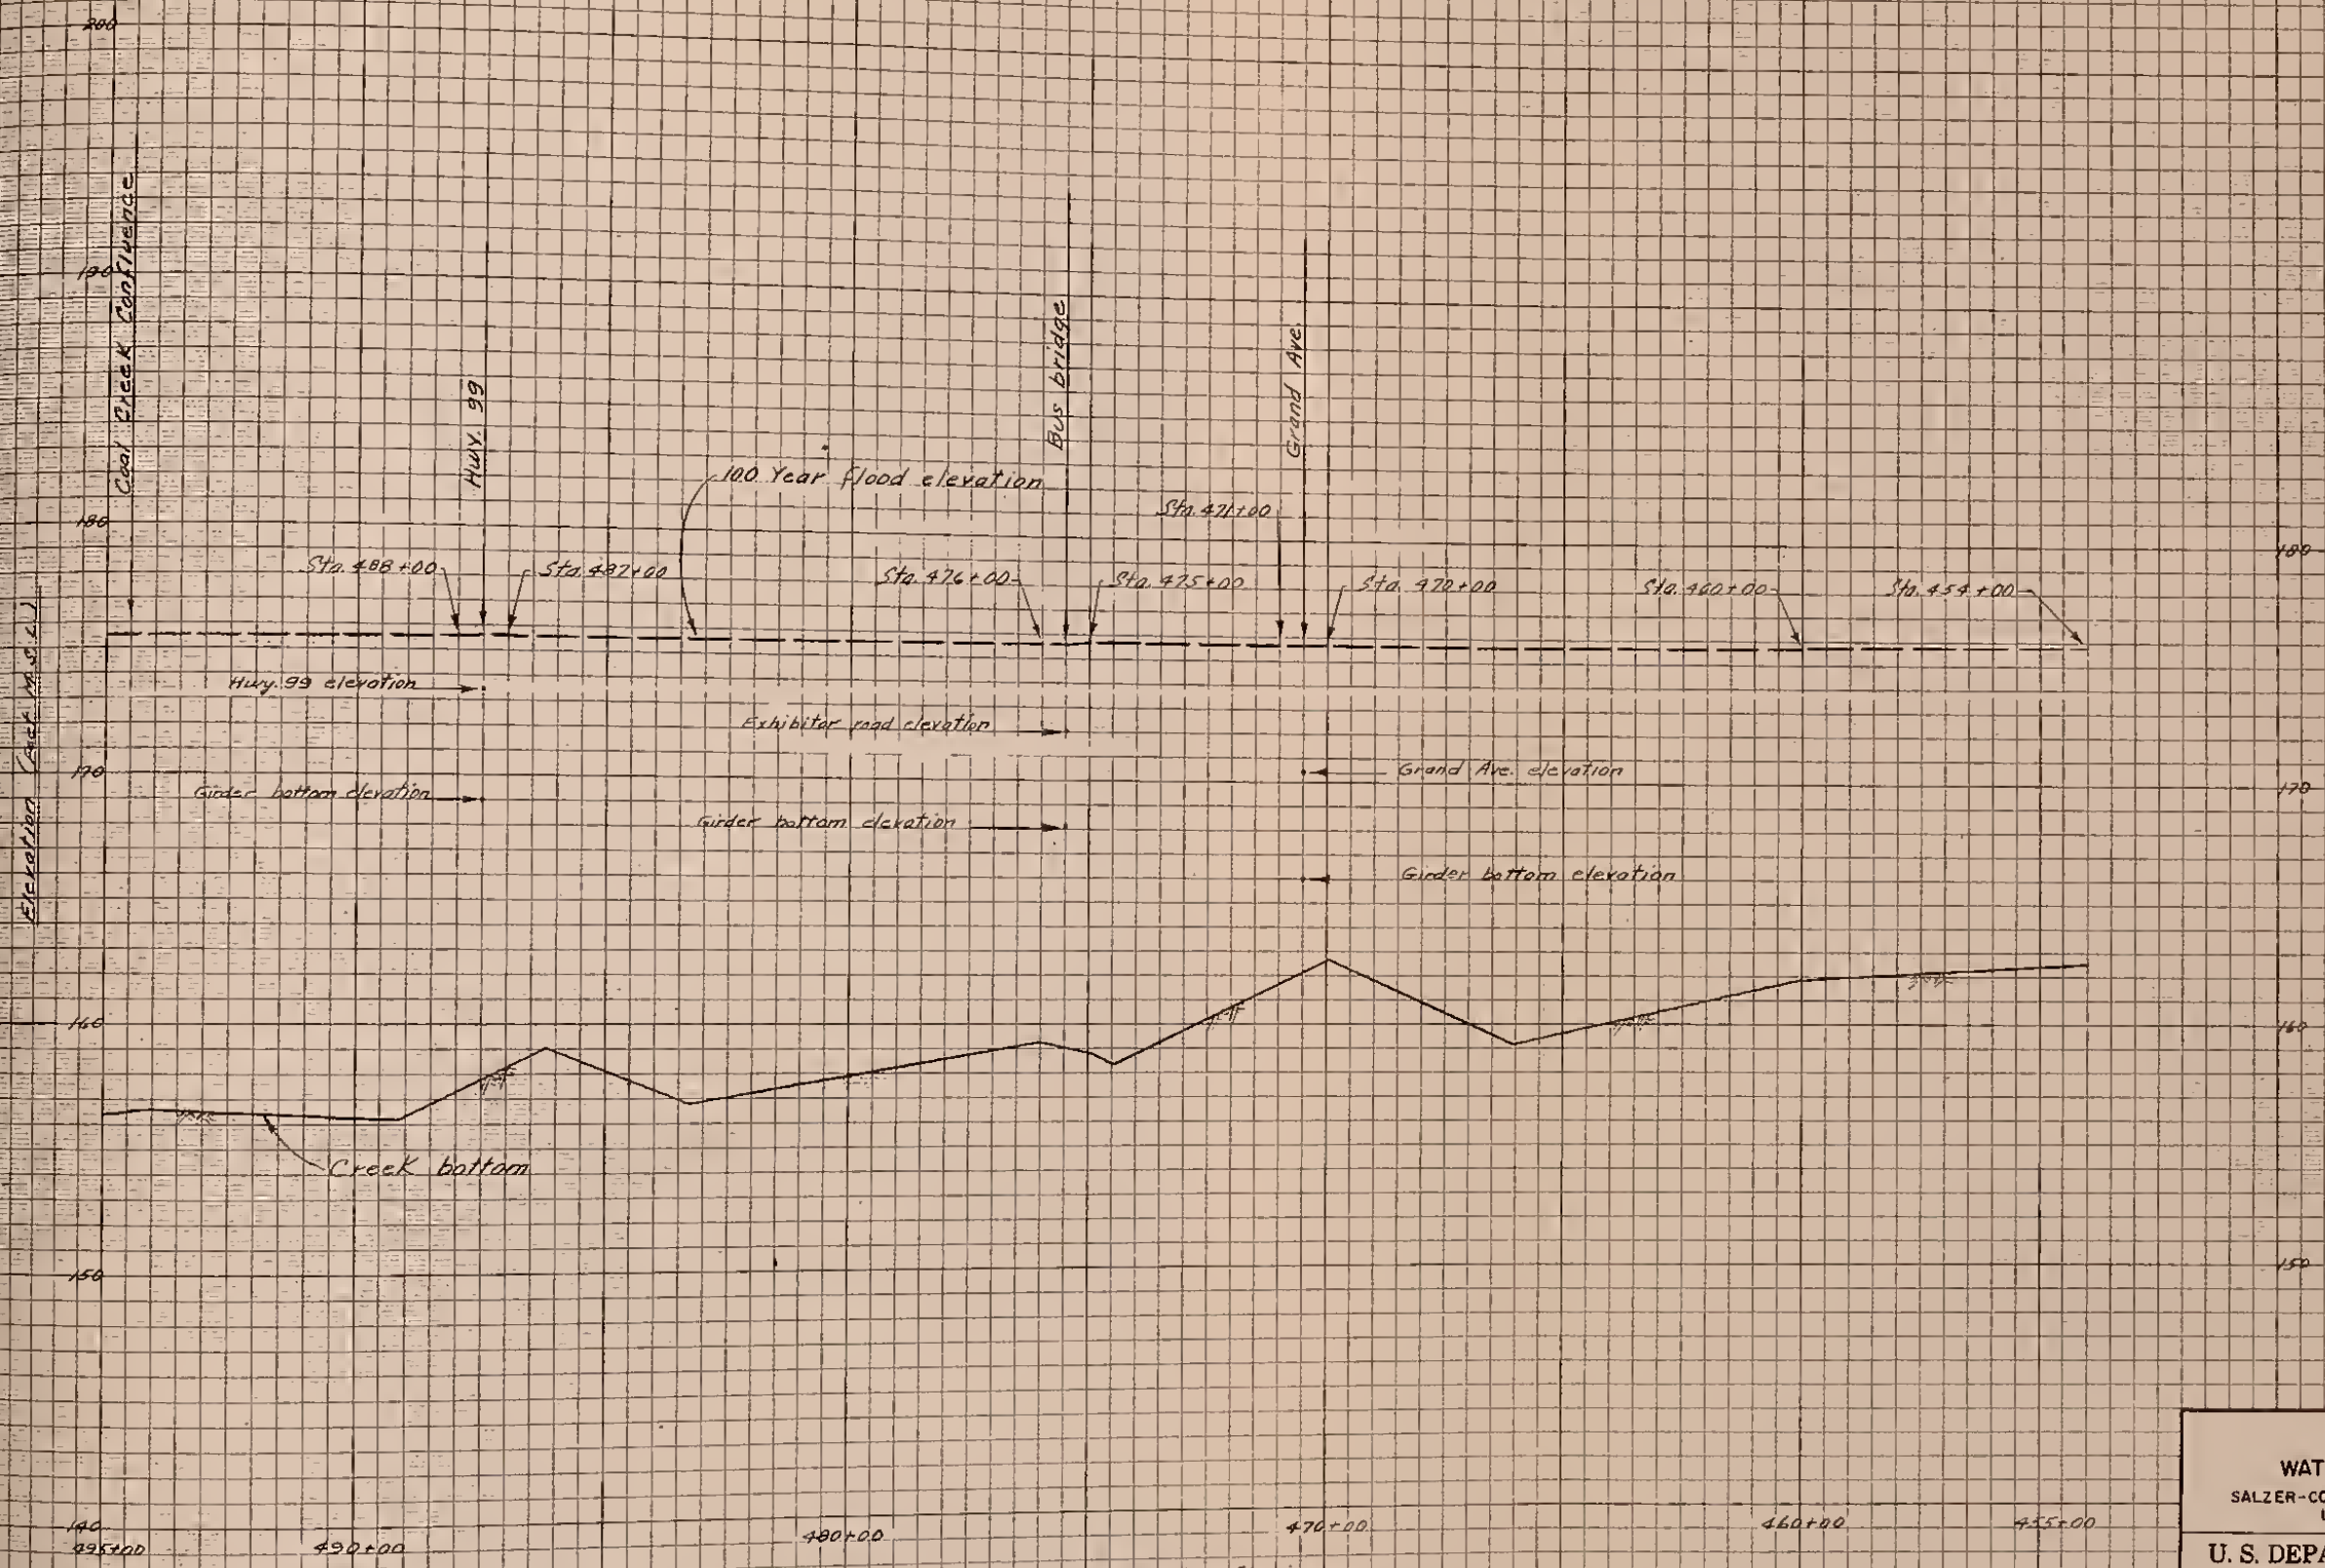 200
190
180
170
160
150
140
Elevation (Feet M.S.L.)
Coal Creek Confluence
Hwy. 99
Bus bridge
Grand Ave.
100 Year flood elevation
Sta. 471+00
Sta. 488+00
Sta. 487+00
Sta. 476+00
Sta. 475+00
Sta. 470+00
Sta. 460+00
Sta. 454+00
Hwy. 99 elevation
Exhibitor road elevation
Grand Ave. elevation
Girder bottom elevation
Girder bottom elevation
Girder bottom elevation
Creek bottom
180
170
160
150
495+00
490+00
480+00
470+00
460+00
455+00
WAT
SALZER-CO
U. S. DEPA